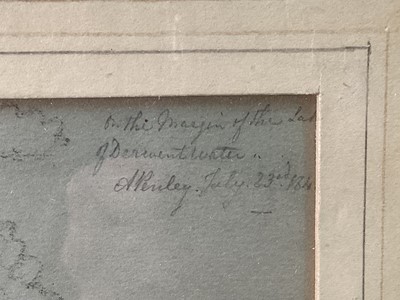 On the Margin of the La
of Derwentwater ..
A Penley. July. 23rd. 184